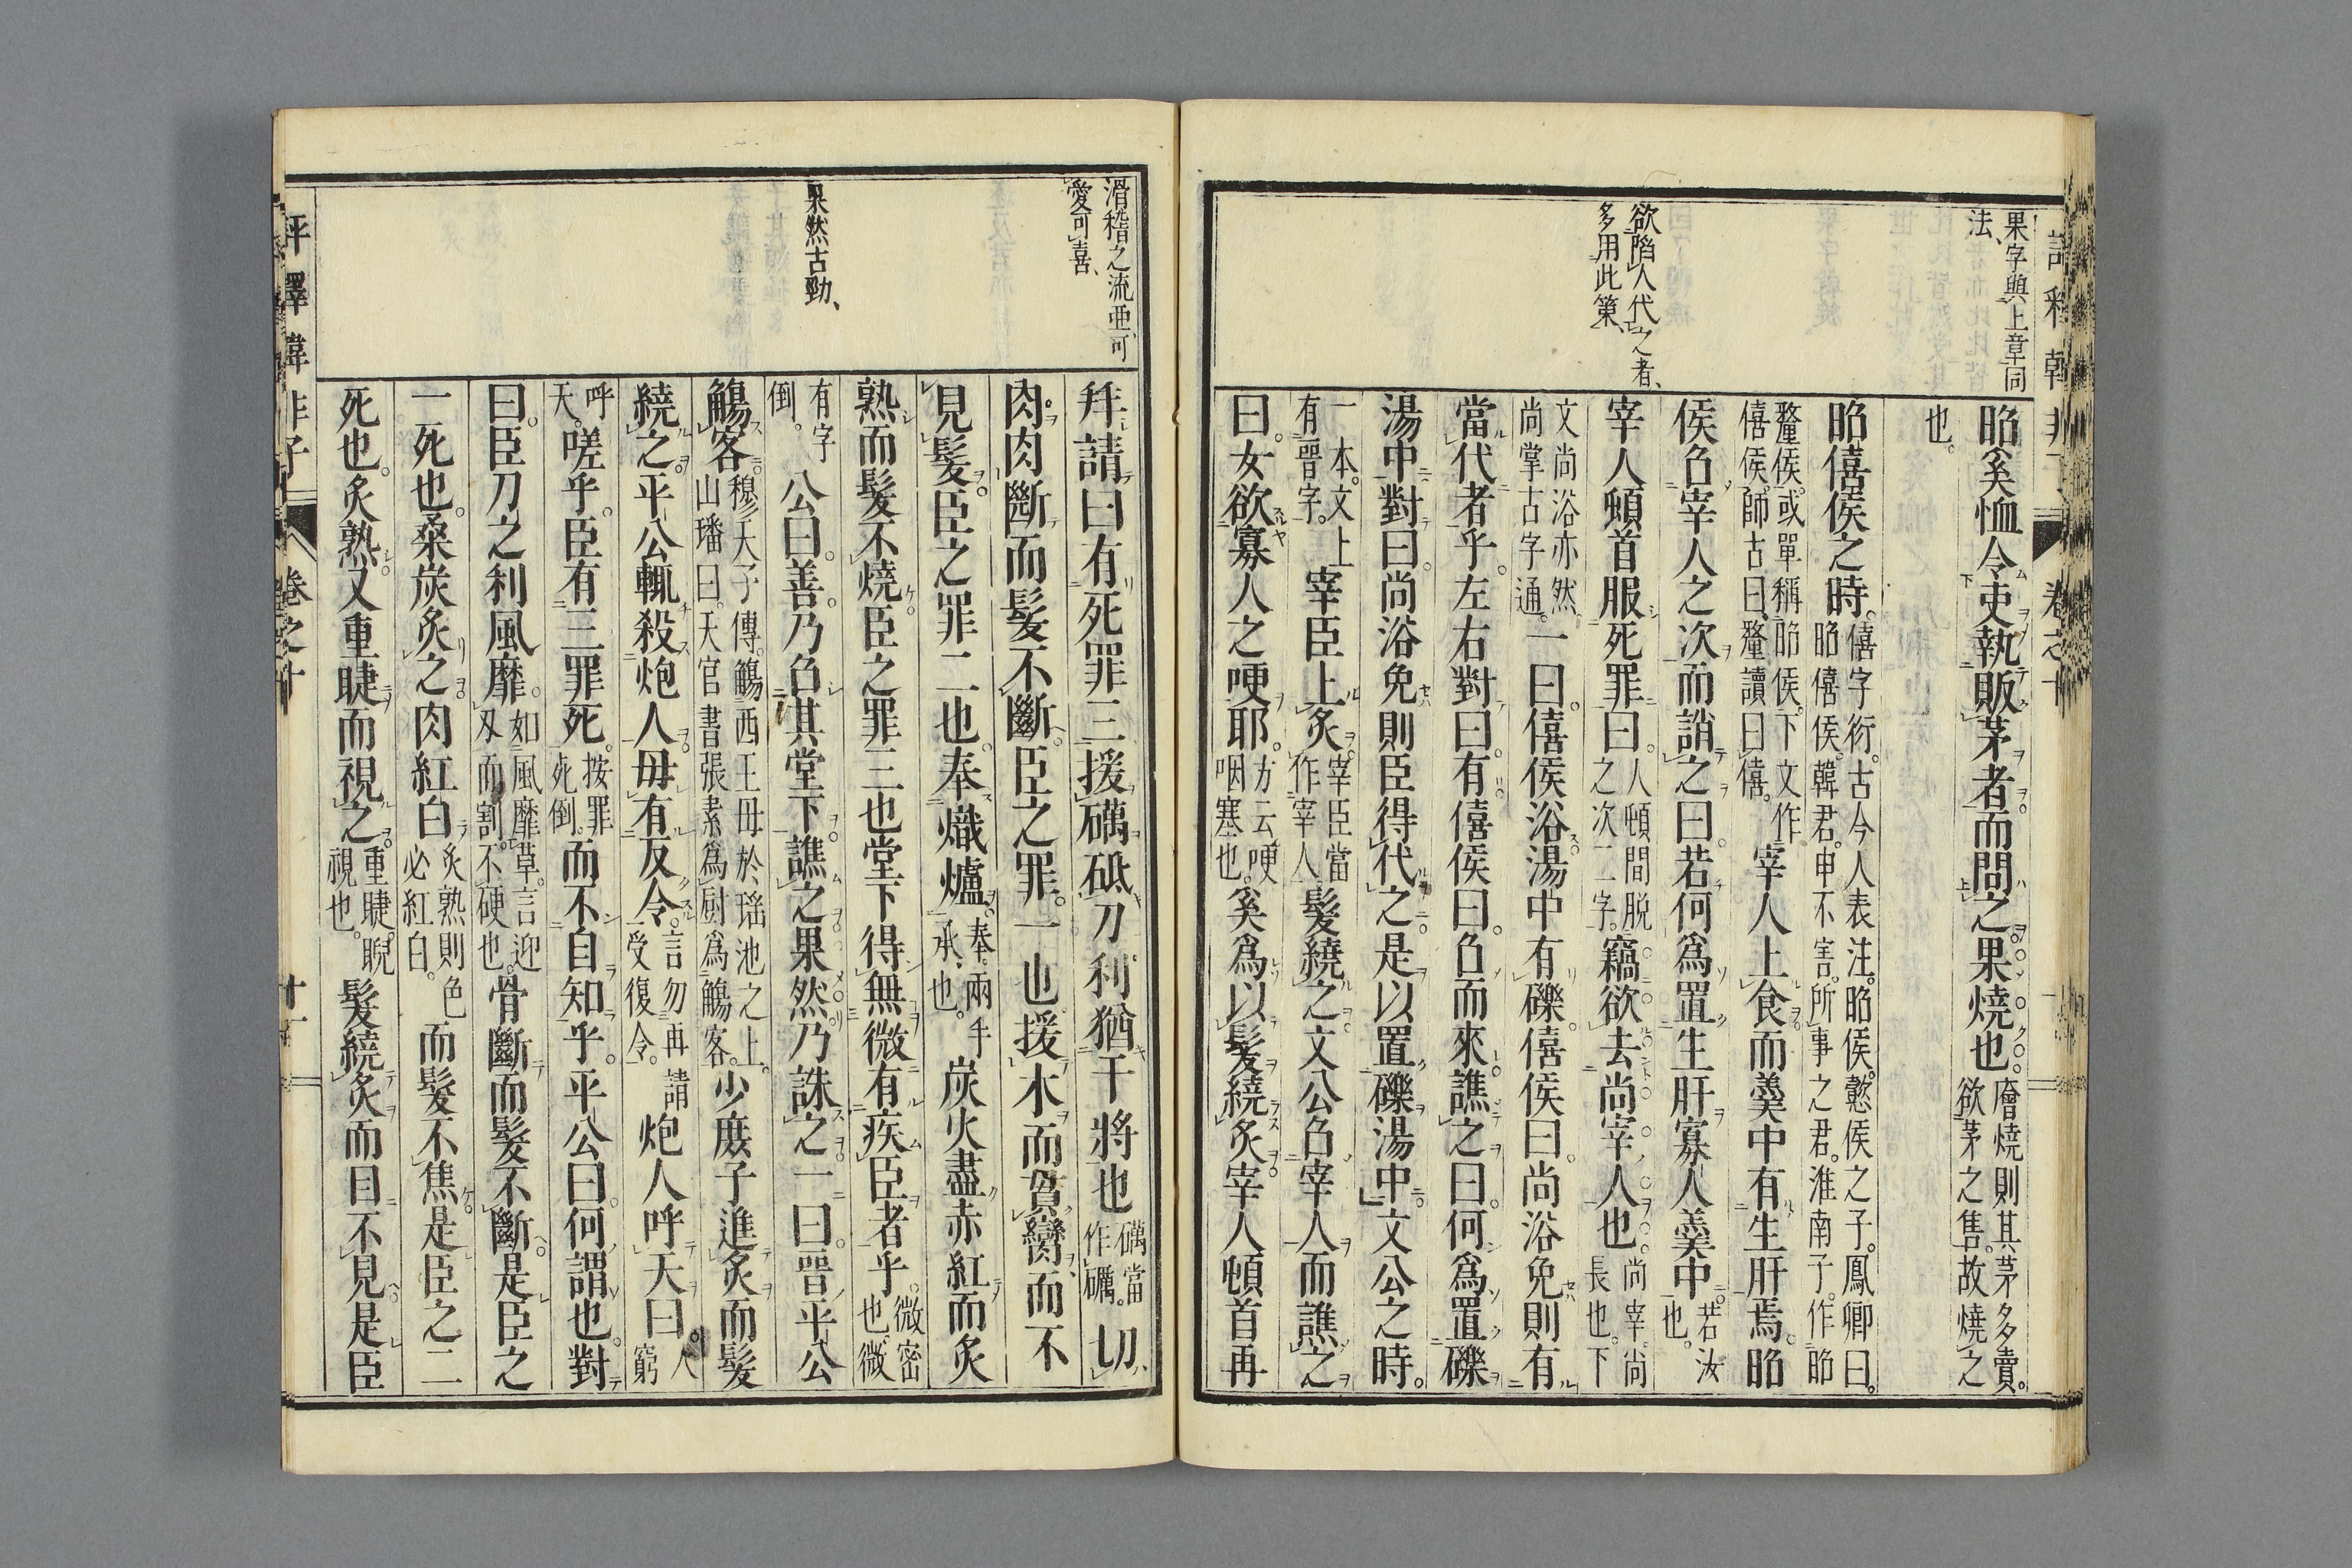 果字與上章同
法、
欲陷人代之者、
多用此策、
昭奚恤令吏執販茅者而問之果燒也。廥燒則其茅多賣。欲茅之售。故燒之
也。
昭僖侯之時。僖字衍。古今人表注。昭侯。懿侯之子。鳳卿曰。昭僖侯。韓君。申不害。所事之君。淮南子。作昭
釐侯。或單稱昭侯。下文作僖侯。師古曰。釐讀曰僖。宰人上食而羹中有生肝焉。昭
侯召宰人之次而誚之曰。若何爲置生肝寡人羹中。若汝也。
宰人頓首服死罪曰。人頓間脫之次二字。竊欲去尚宰人也。尚宰。尚長也。下
文尚浴亦然。尚掌古字通。一曰。僖侯浴湯中有礫。僖侯曰。尚浴免則有
當代者乎。左右對曰。有僖侯曰。召而來。譙之曰。何爲置礫
湯中對曰。尚浴免則臣得代之。是以置礫湯中。文公之時。
一本。文上有晉字。宰臣上炙。宰臣當作宰人髮繞之文公召宰人而譙之
曰。女欲寡人之哽耶。方云哽咽塞也。奚爲以髮繞炙宰人頓首再
滑稽之流亜、可
愛可喜、
果然古勁、
拜請曰有死罪三援礪砥刀利猶干將也礪當作礪。切
肉肉斷而髮不斷臣之罪。一也援木而貫臠而不
見髮。臣之罪二也。奉熾爐。奉。兩手承也。炭火盡赤紅而炙
熟而髮不燒臣之罪三也堂下得無微有疾臣者乎。微密也。微
有字倒。公曰。善。乃召其堂下譙之果然乃誅之一曰晉平公
觴客。穆天子傳。觴西王母於瑤池之上。山璠曰。天官書張素爲厨爲觴客。少庶子進炙而髮
繞之。平公輒殺炮人。毋有反令。言勿再請受復令。炮人呼天曰。人窮
呼天。嗟乎。臣有三罪死。按罪死倒。而不自知乎。平公曰。何謂也。對
曰。臣刀之利風靡。如風靡草。言迎刃而割。不硬也。骨斷而髮不斷。是臣之
一死也。桑炭炙之。肉紅白炙熟則色必紅白。而髮不焦是臣之二
死也。炙熟又重睫而視之。重睫。睨視也。髮繞炙而目不見是臣
評釋韓非子
卷之十
十一